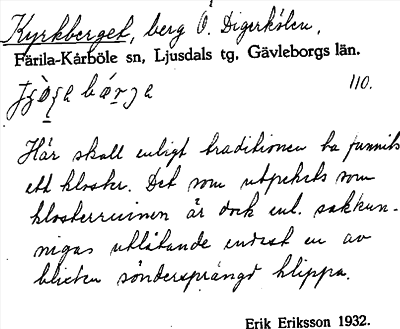 Kyrkberget, berg Ö. Digerkölen,
Färila-Kårböle sn, Ljusdals tg, Gävleborgs län.
110.
Här skall enligt traditionen ha funnits
ett kloster. Det som utpekats som
klosterruinen är dock enl. sakkun-
nigas utlåtande endast en av
blixten söndersprängd klippa.
Erik Eriksson 1932.